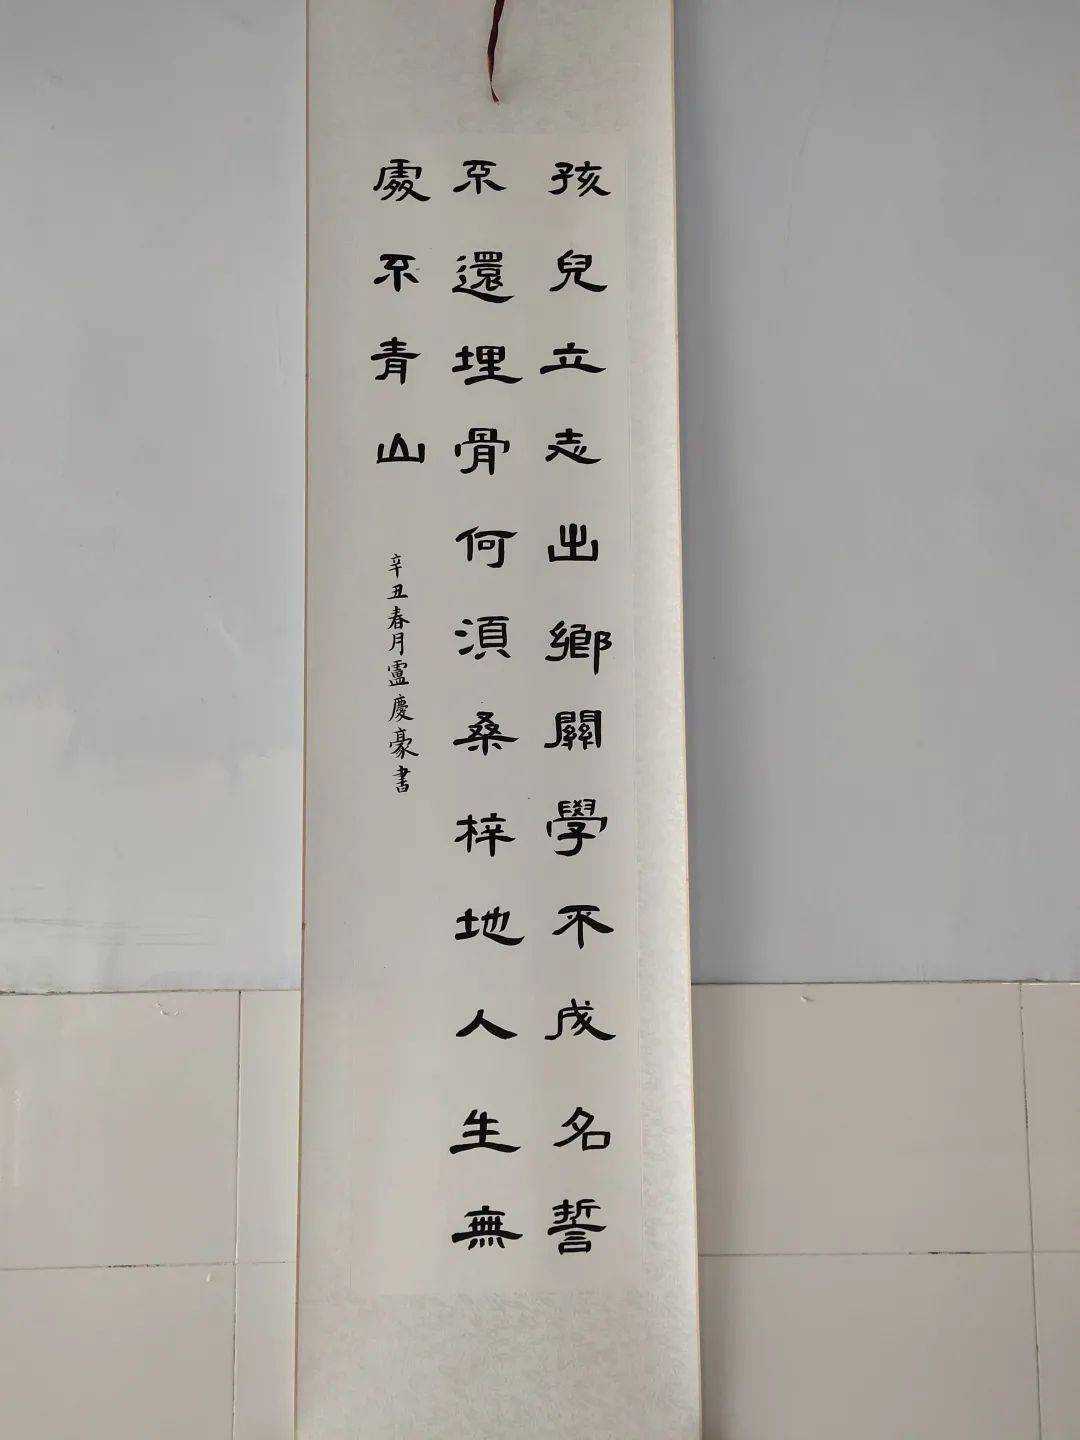 孩兒立志出鄉關學不成名誓
不還埋骨何須桑梓地人生無
處不青山
辛丑春月盧慶豪書